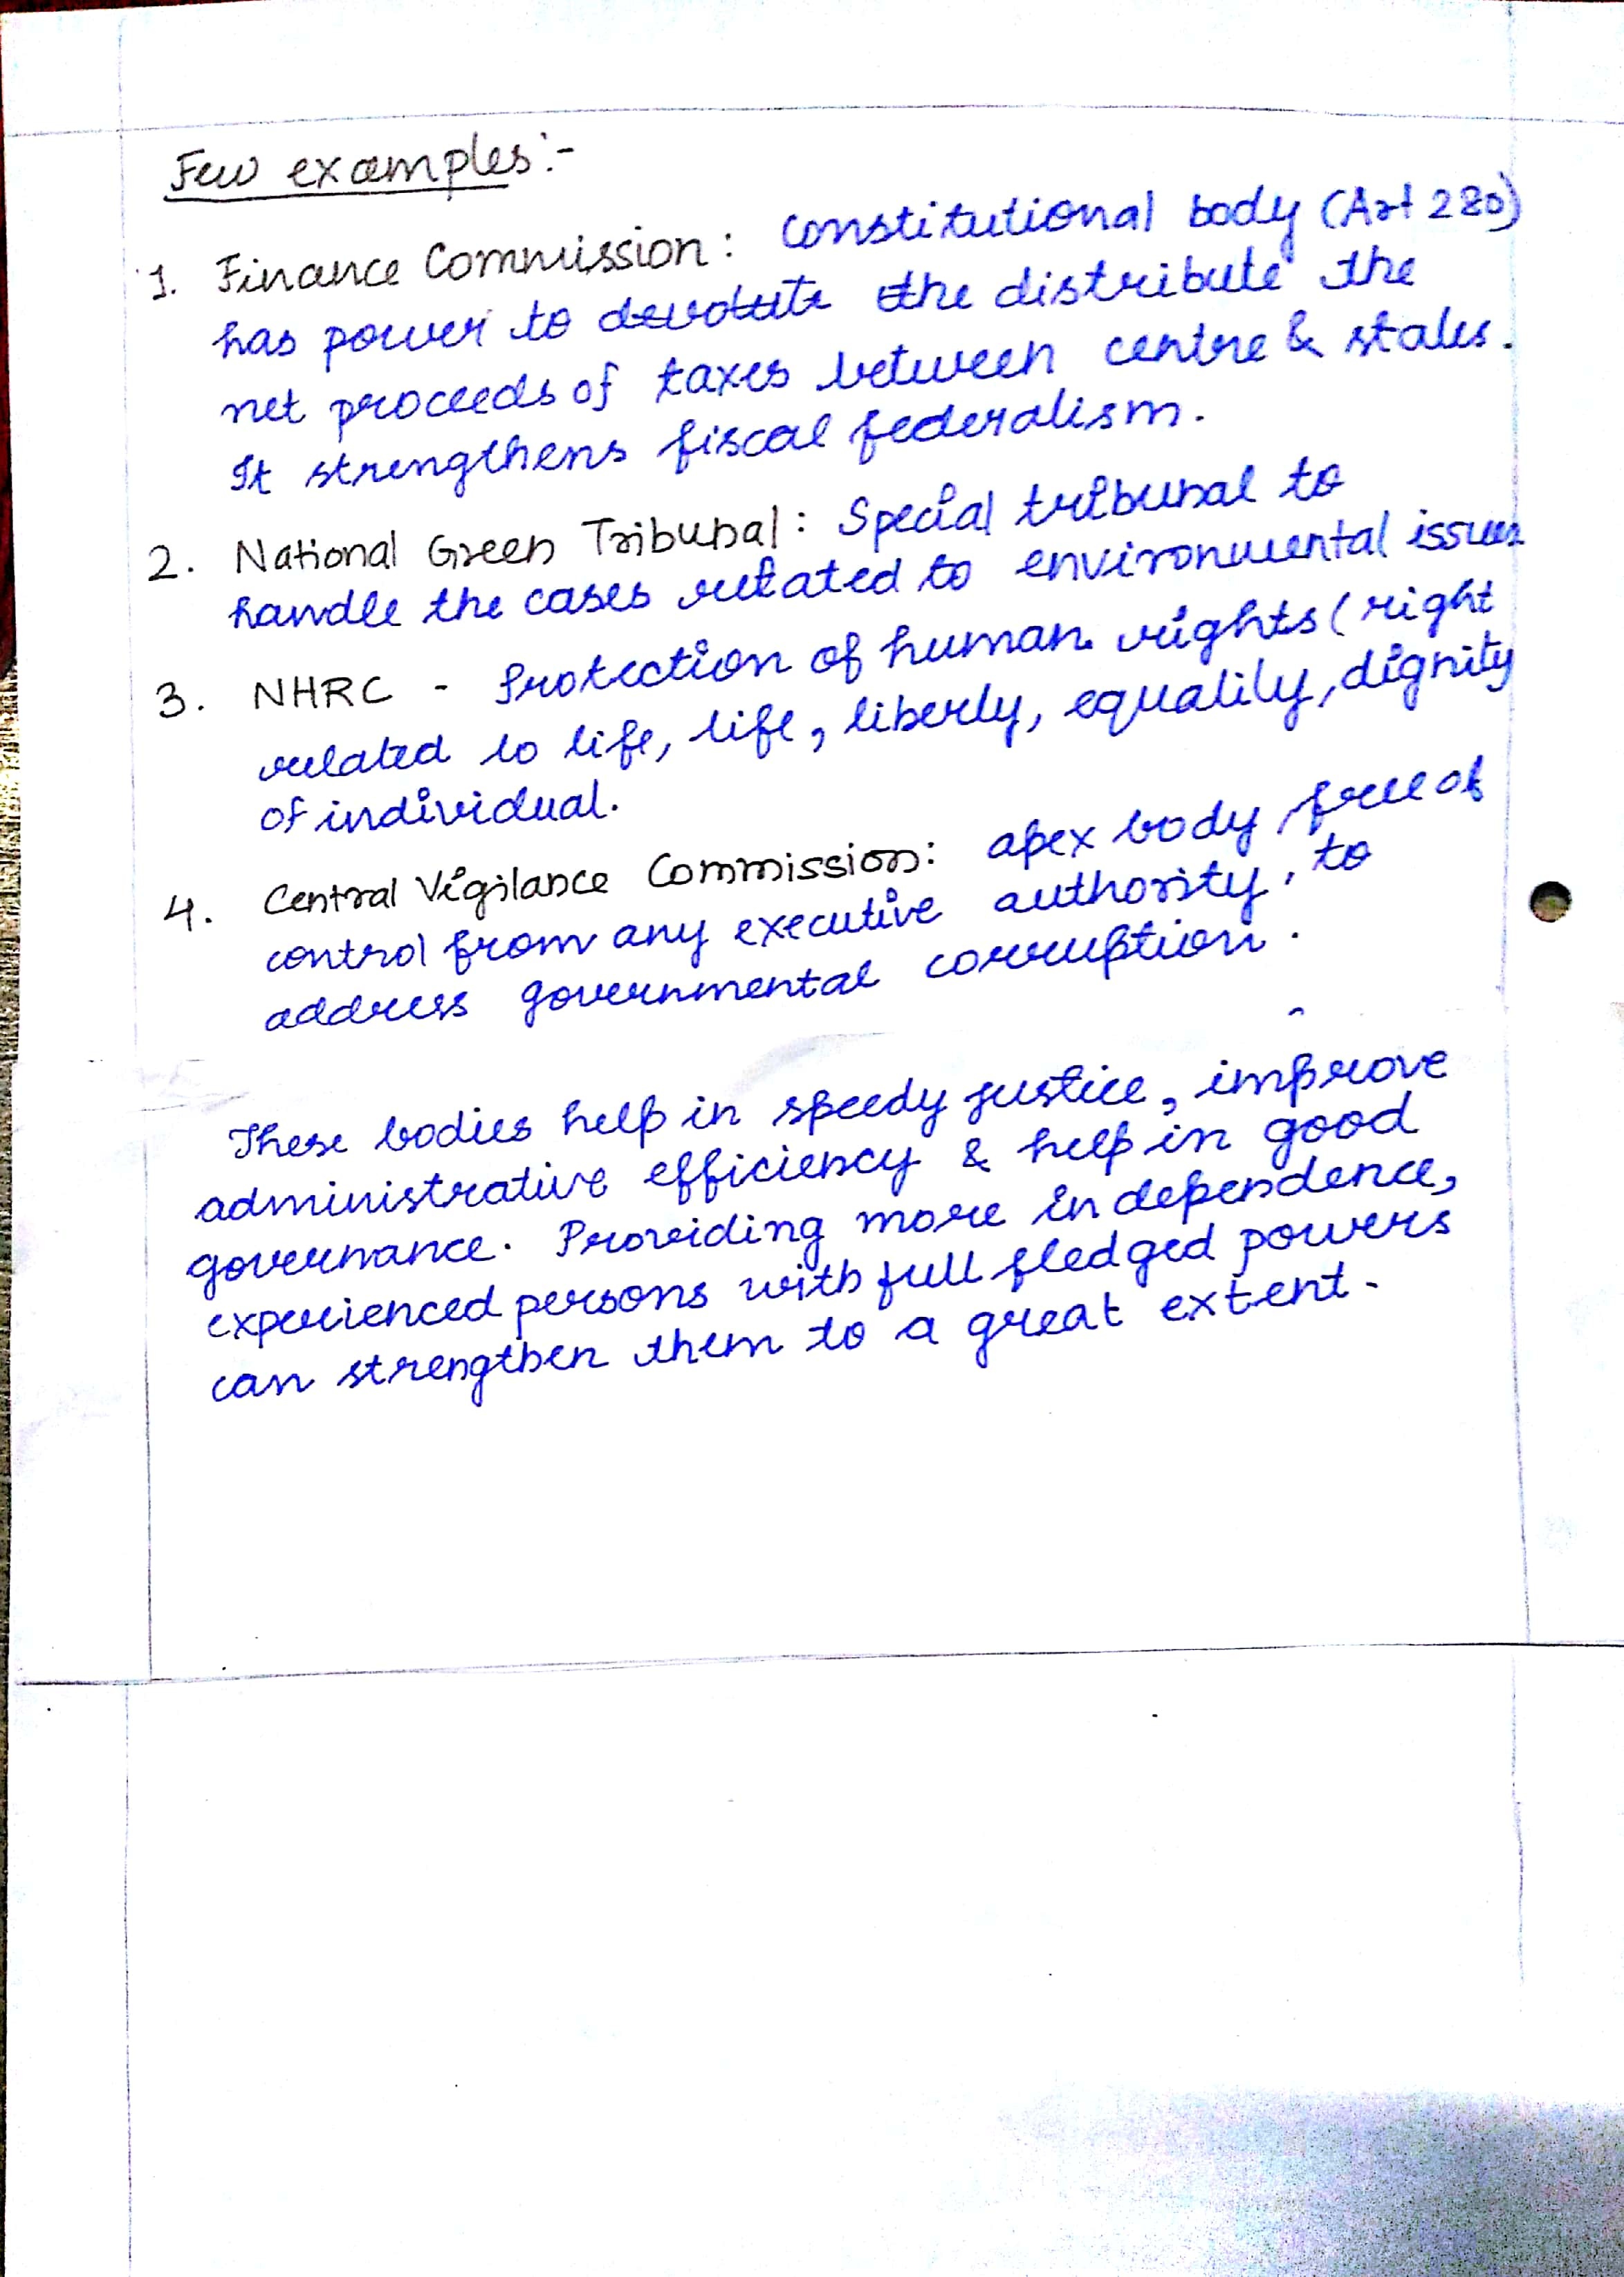 Few examples:-
1. Finance Commission: Constitutional body (Art 280)
has power to the distribute the
net proceeds of taxes between centre & states.
It strengthens fiscal federalism.
2. National Green Tribunal: Special tribunal to
handle the cases related to environmental issues
3. NHRC - Protection of human rights (right
related to life, life, liberty, equality, dignity
of individual.
4. Central Vigilance Commission: apex body free of
control from any executive authority, to
address governmental corruption.
These bodies help in speedy justice, improve
administrative efficiency & help in good
governance. Providing more independence,
experienced persons with full fledged powers
can strengthen them to a great extent.